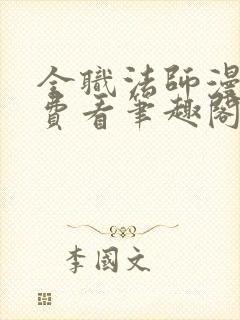 全職法師漫
費看筆趣閣
李國文